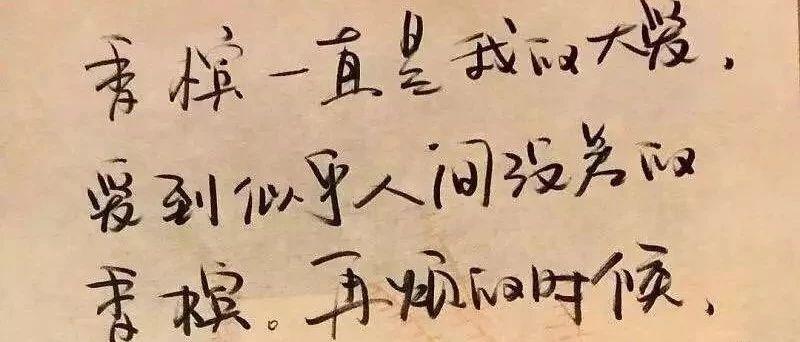 香槟一直是我的大爱，
爱到似乎人间没差的
香槟。再烦的时候，